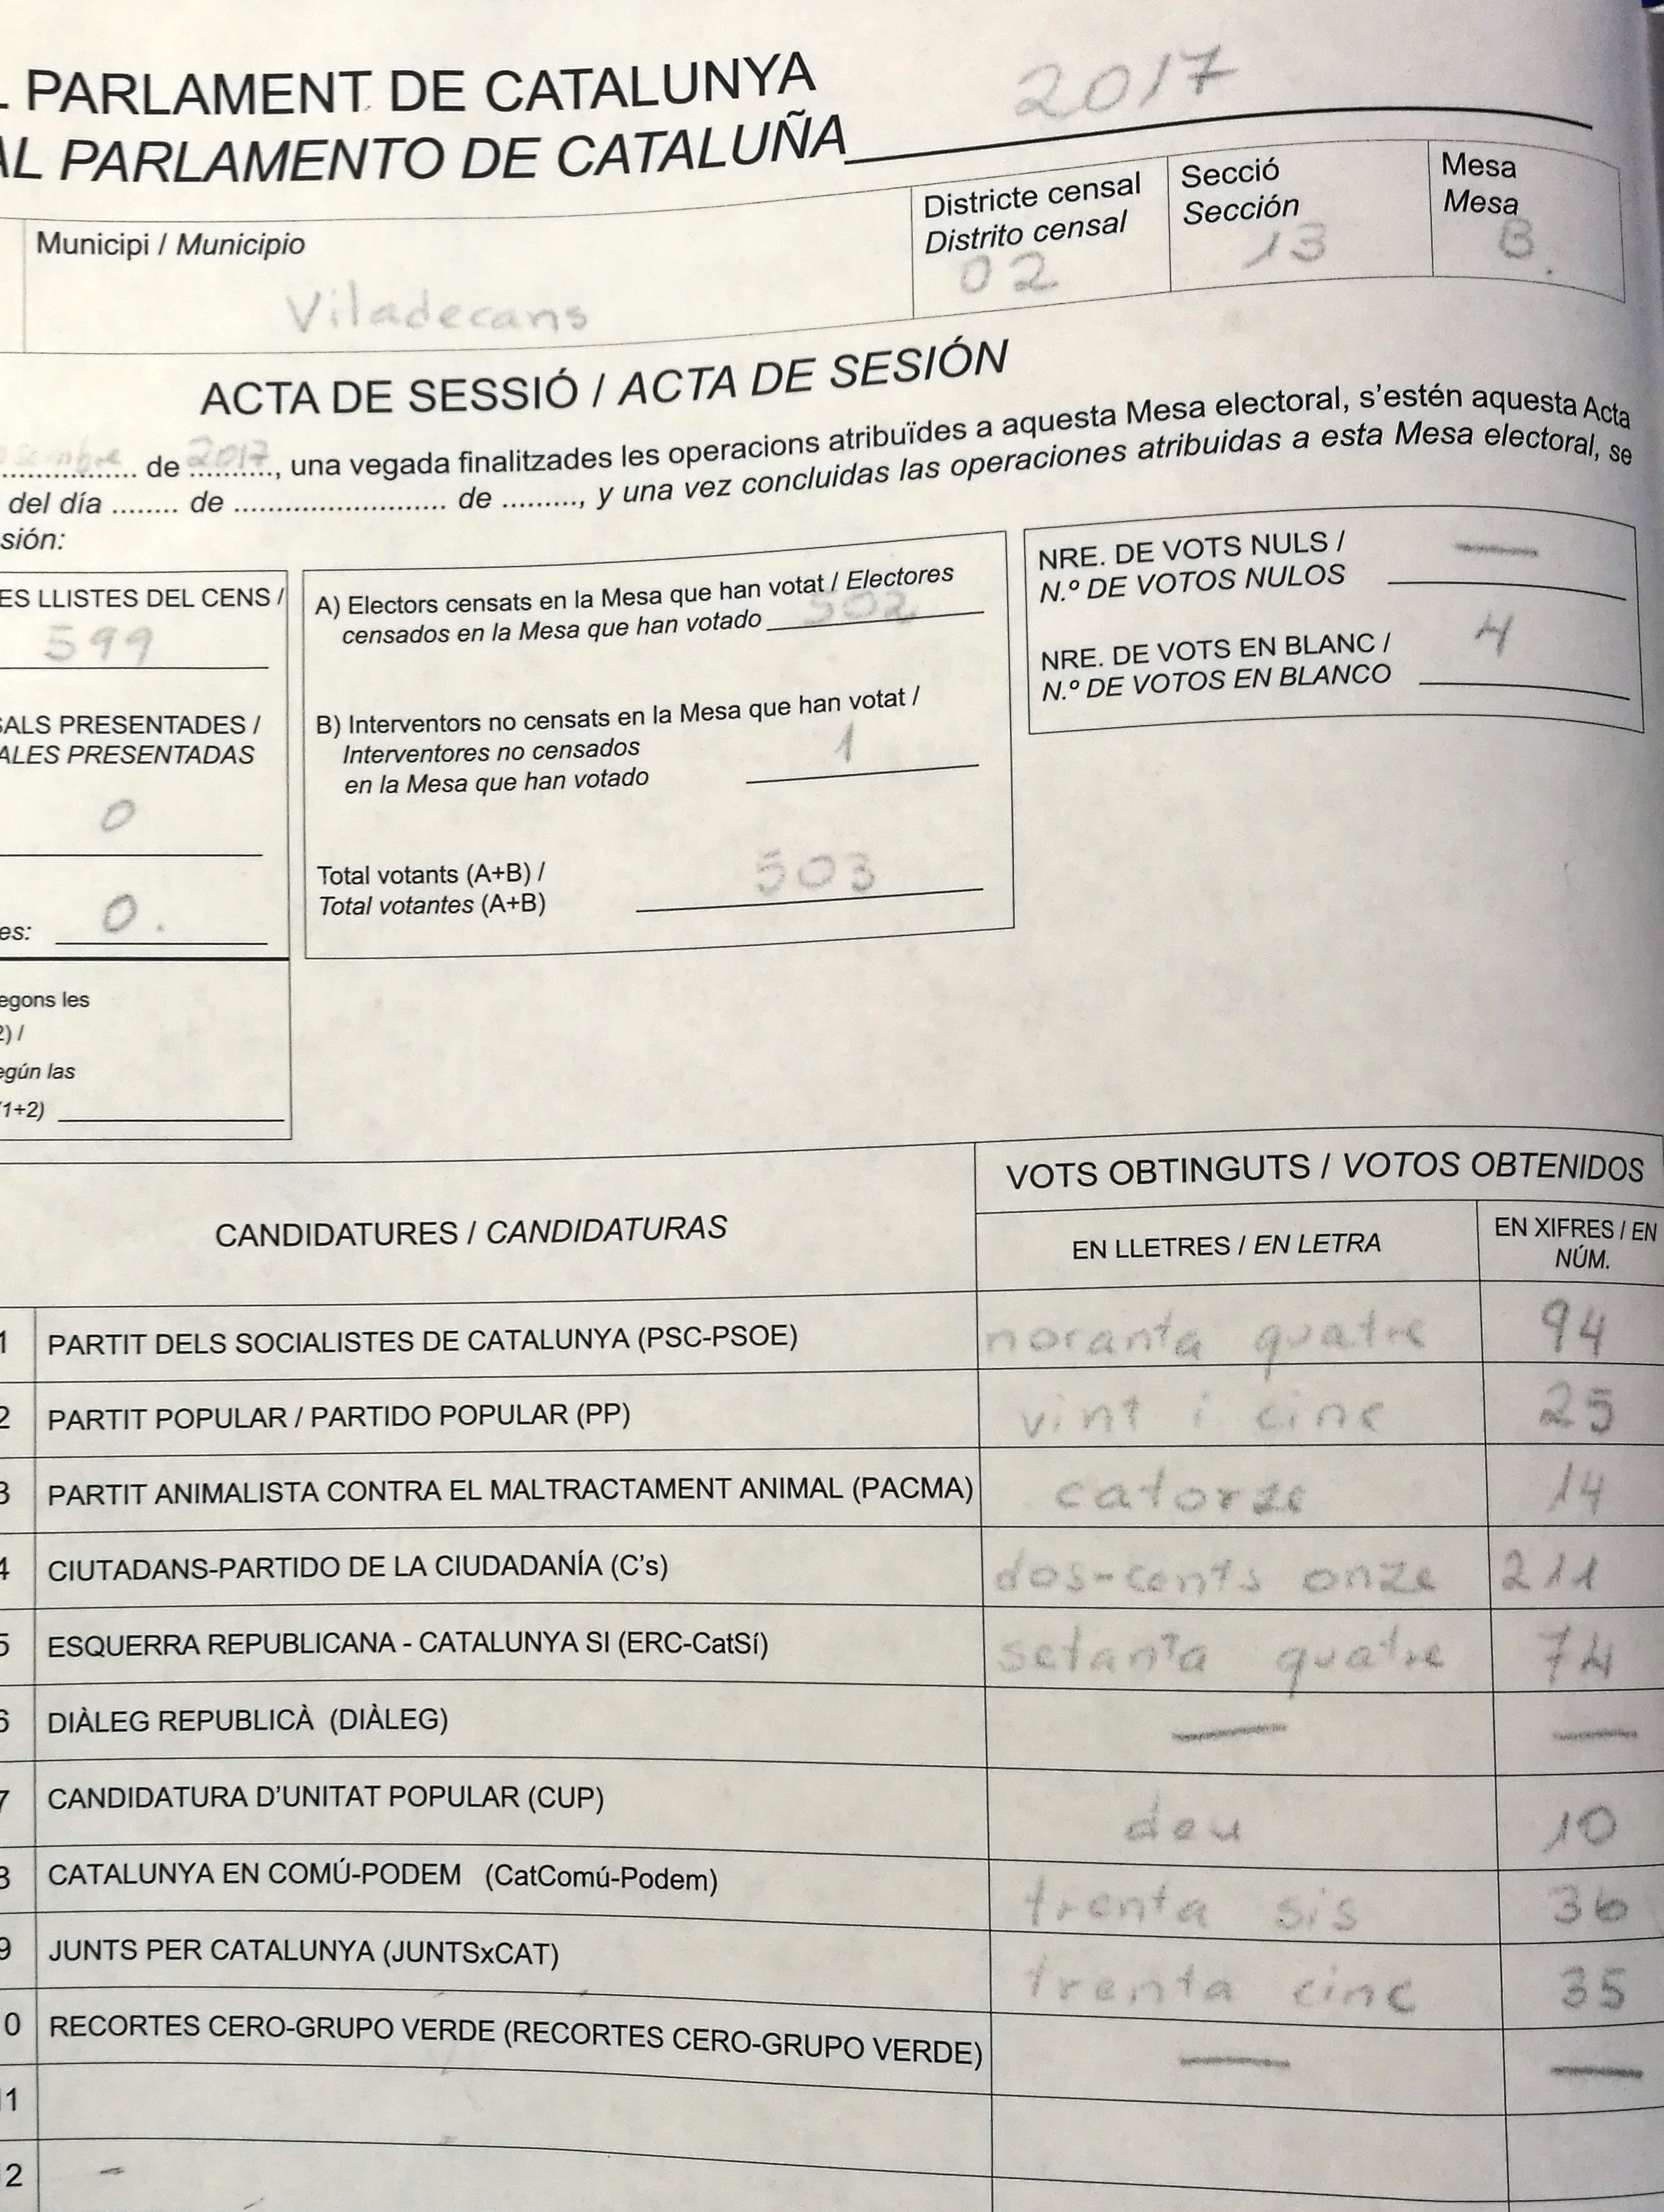 PARLAMENT DE CATALUNYA
AL PARLAMENTO DE CATALUÑA 2017
Municipi / Municipio
Viladecans
Districte censal
Distrito censal
02
Secció
Sección
13
Mesa
Mesa
B.
ACTA DE SESSIÓ / ACTA DE SESIÓN
de 2017, una vegada finalitzades les operacions atribuïdes a aquesta Mesa electoral, s'estén aquesta Acta
del día ........ de ........................ de ........., y una vez concluidas las operaciones atribuidas a esta Mesa electoral, se
sión:
ES LLISTES DEL CENS /
599
SALS PRESENTADES /
ALES PRESENTADAS
0
es: 0.
egons les
2) /
egún las
(1+2)
A) Electors censats en la Mesa que han votat / Electores
censados en la Mesa que han votado 502
B) Interventors no censats en la Mesa que han votat /
Interventores no censados
en la Mesa que han votado 1
Total votants (A+B) /
Total votantes (A+B) 503
NRE. DE VOTS NULS /
N.º DE VOTOS NULOS —
NRE. DE VOTS EN BLANC /
N.º DE VOTOS EN BLANCO 4
CANDIDATURES / CANDIDATURAS
VOTS OBTINGUTS / VOTOS OBTENIDOS
EN LLETRES / EN LETRA
EN XIFRES / EN
NÚM.
1 PARTIT DELS SOCIALISTES DE CATALUNYA (PSC-PSOE) noranta quatre 94
2 PARTIT POPULAR / PARTIDO POPULAR (PP) vint i cinc 25
3 PARTIT ANIMALISTA CONTRA EL MALTRACTAMENT ANIMAL (PACMA) catorze 14
4 CIUTADANS-PARTIDO DE LA CIUDADANÍA (C's) dos-cents onze 211
5 ESQUERRA REPUBLICANA - CATALUNYA SI (ERC-CatSí) setanta quatre 74
6 DIÀLEG REPUBLICÀ (DIÀLEG) — —
7 CANDIDATURA D'UNITAT POPULAR (CUP) deu 10
8 CATALUNYA EN COMÚ-PODEM (CatComú-Podem) trenta sis 36
9 JUNTS PER CATALUNYA (JUNTSxCAT) trenta cinc 35
0 RECORTES CERO-GRUPO VERDE (RECORTES CERO-GRUPO VERDE) — —
11
12 -